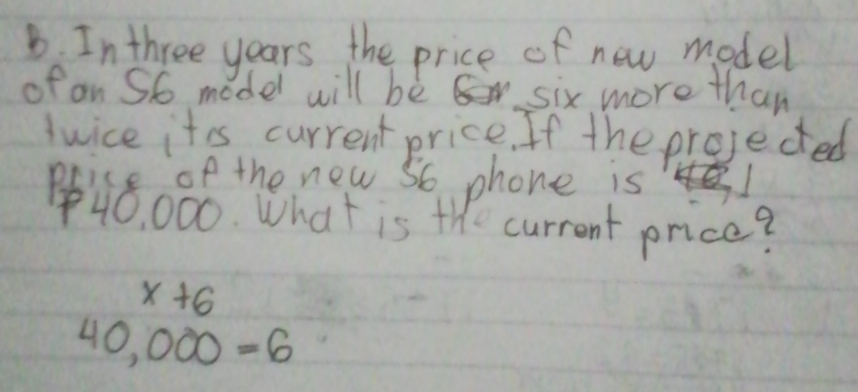 b. In three years the price of new model
of an S6 model will be six more than
twice it's current price. If the projected
price of the new S6 phone is
₱40,000. What is the current price?
x + 6
40,000 = 6